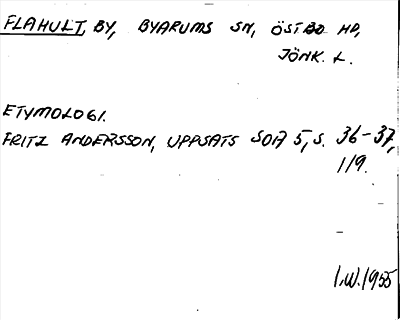 FLAHULT, BY, BYARUMS SN, ÖSTBO HD,
JÖNK. L.
ETYMOLOGI.
FRITZ ANDERSSON, UPPSATS SOA 5, S. 36-37,
119.
I.W. 1955